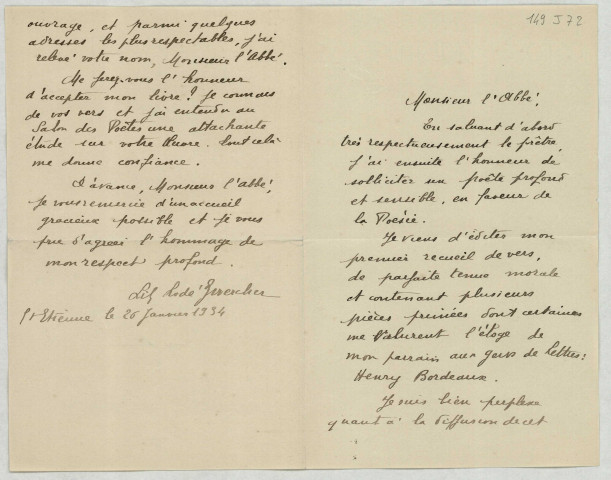 149 J 72
Monsieur l'Abbé,
En saluant d'abord
très respectueusement le prêtre,
j'ai ensuite l'honneur de
solliciter un poète profond
et sensible, en faveur de
la Poésie.
Je viens d'éditer mon
premier recueil de vers,
de parfaite tenue morale
et contenant plusieurs
pièces primées dont certaines
me valurent l'éloge de
mon parrain aux Gens de Lettres:
Henry Bordeaux.
Je suis bien perplexe
quant à la diffusion de cet
ouvrage, et parmi quelques
adresses les plus respectables, j'ai
relevé votre nom, Monsieur l'Abbé.
Me ferez-vous l'honneur
d'accepter mon livre? Je connais
de vos vers et j'ai entendu au
Salon des Poètes une attachante
étude sur votre Œuvre. Tout cela
me donne confiance.
D'avance, Monsieur l'abbé,
je vous remercie d'un accueil
gracieux possible et je vous
prie d'agréer l'hommage de
mon respect profond.
St Etienne le 26 Janvier 1934